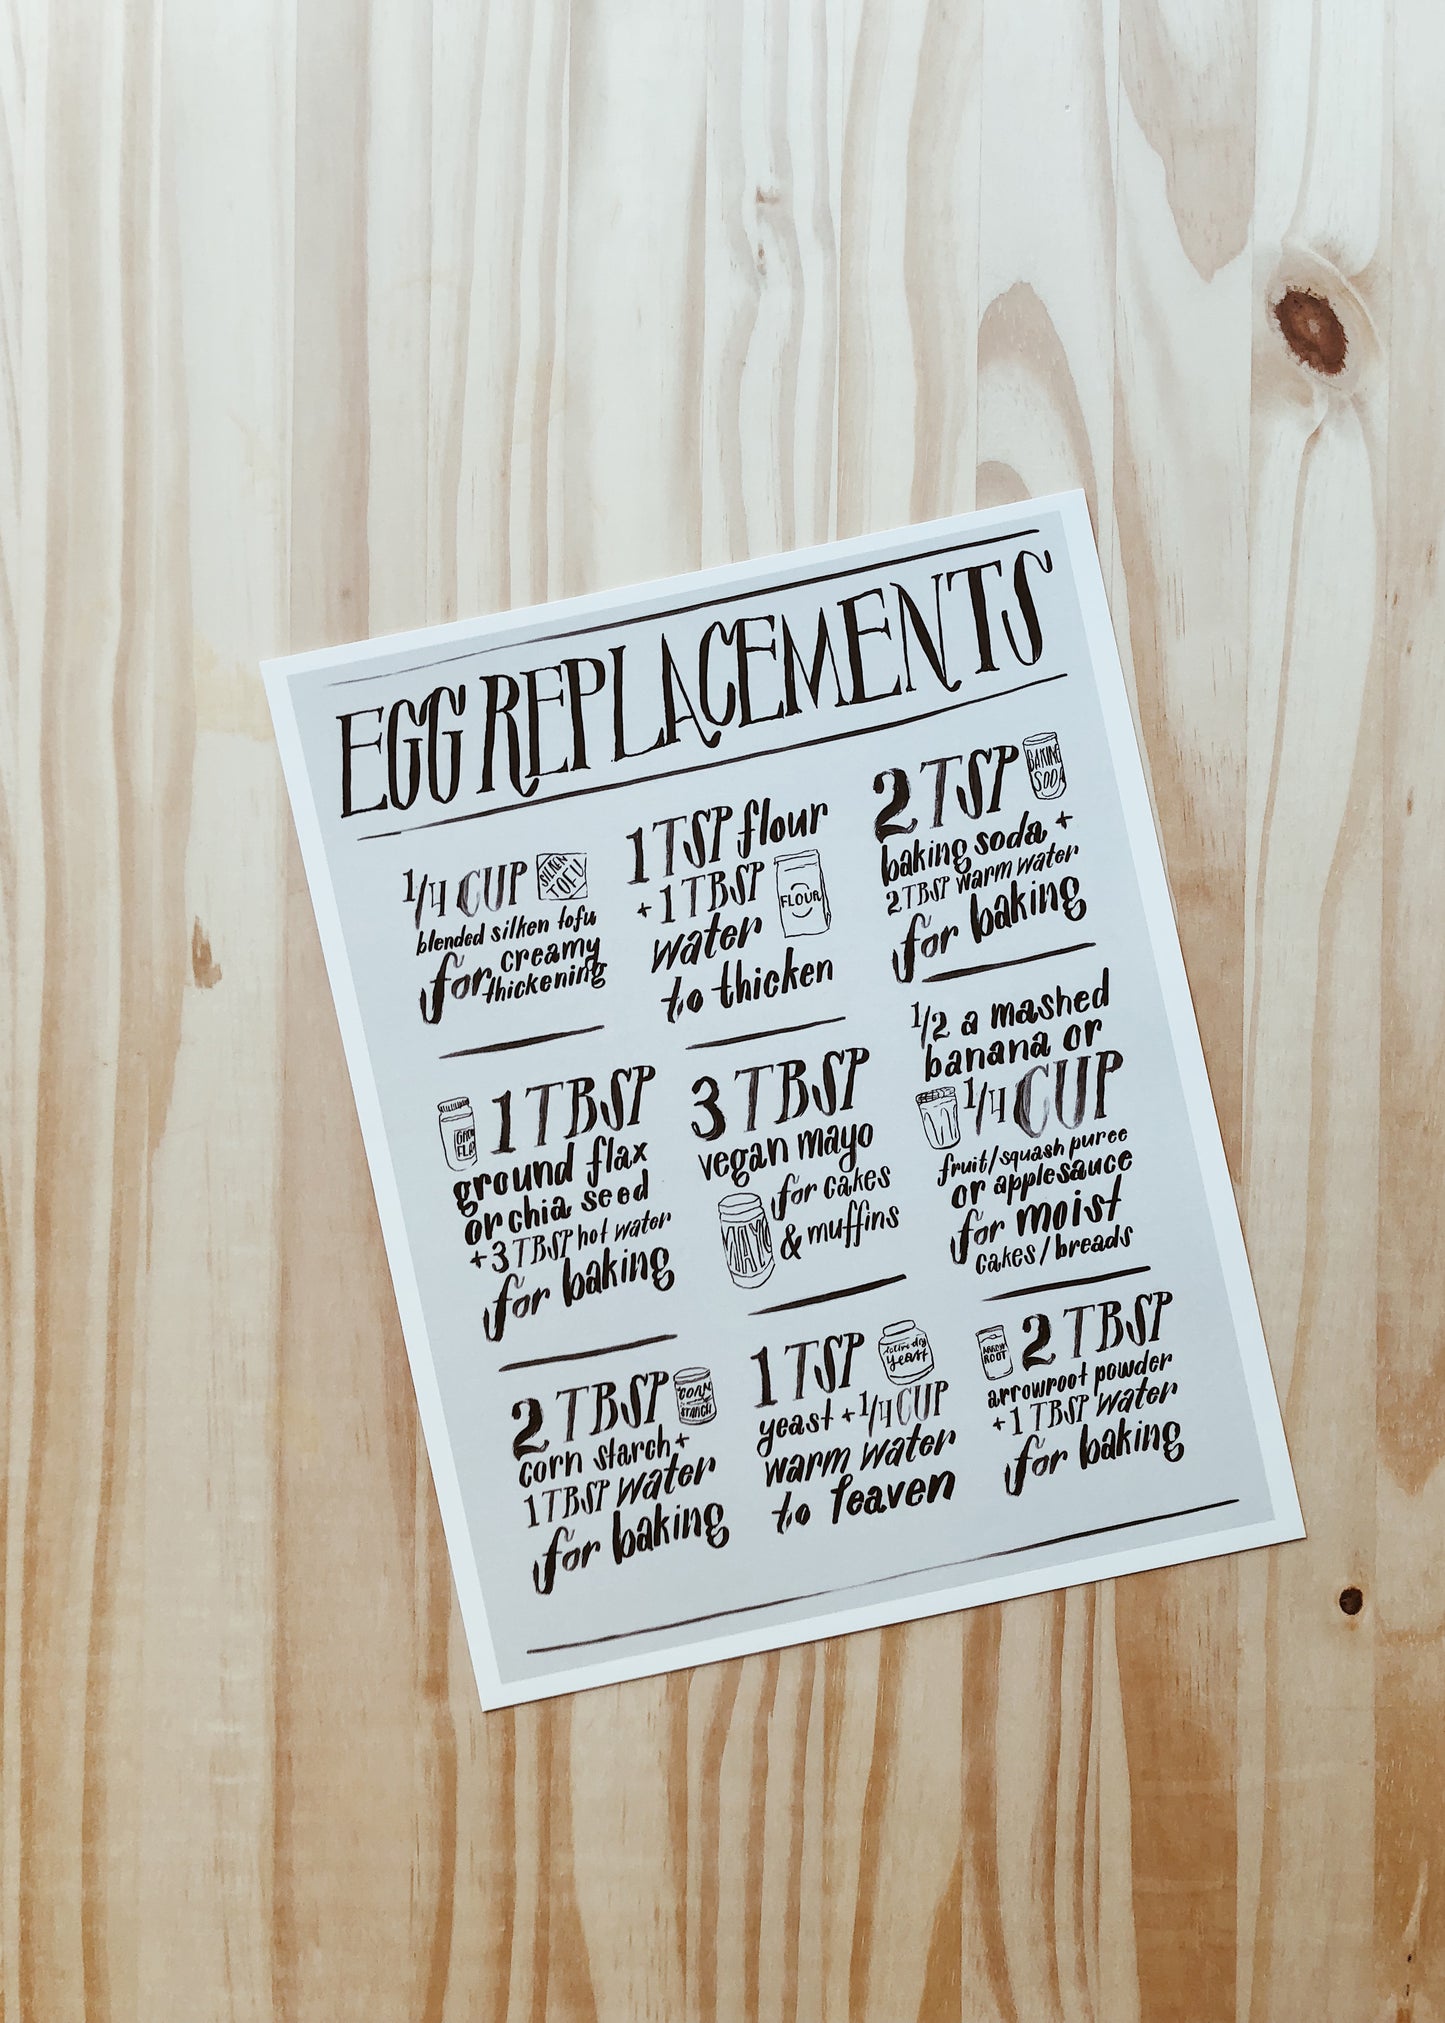 EGG REPLACEMENTS
1/4 CUP
SILKEN
TOFU
blended silken tofu
for creamy
thickening
1 TSP flour
+ 1 TBSP
FLOUR
water
to thicken
2 TSP
BAKING
SODA
baking soda +
2 TBSP warm water
for baking
1 TBSP
ground flax
or chia seed
+ 3 TBSP hot water
for baking
3 TBSP
vegan mayo
for cakes
& muffins
MAYO
1/2 a mashed
banana or
1/4 CUP
fruit/squash puree
or applesauce
for moist
cakes/breads
2 TBSP
CORN
STARCH
corn starch +
1 TBSP water
for baking
1 TSP
active dry
yeast
yeast + 1/4 CUP
warm water
to leaven
2 TBSP
ARROW
ROOT
arrowroot powder
+ 1 TBSP water
for baking